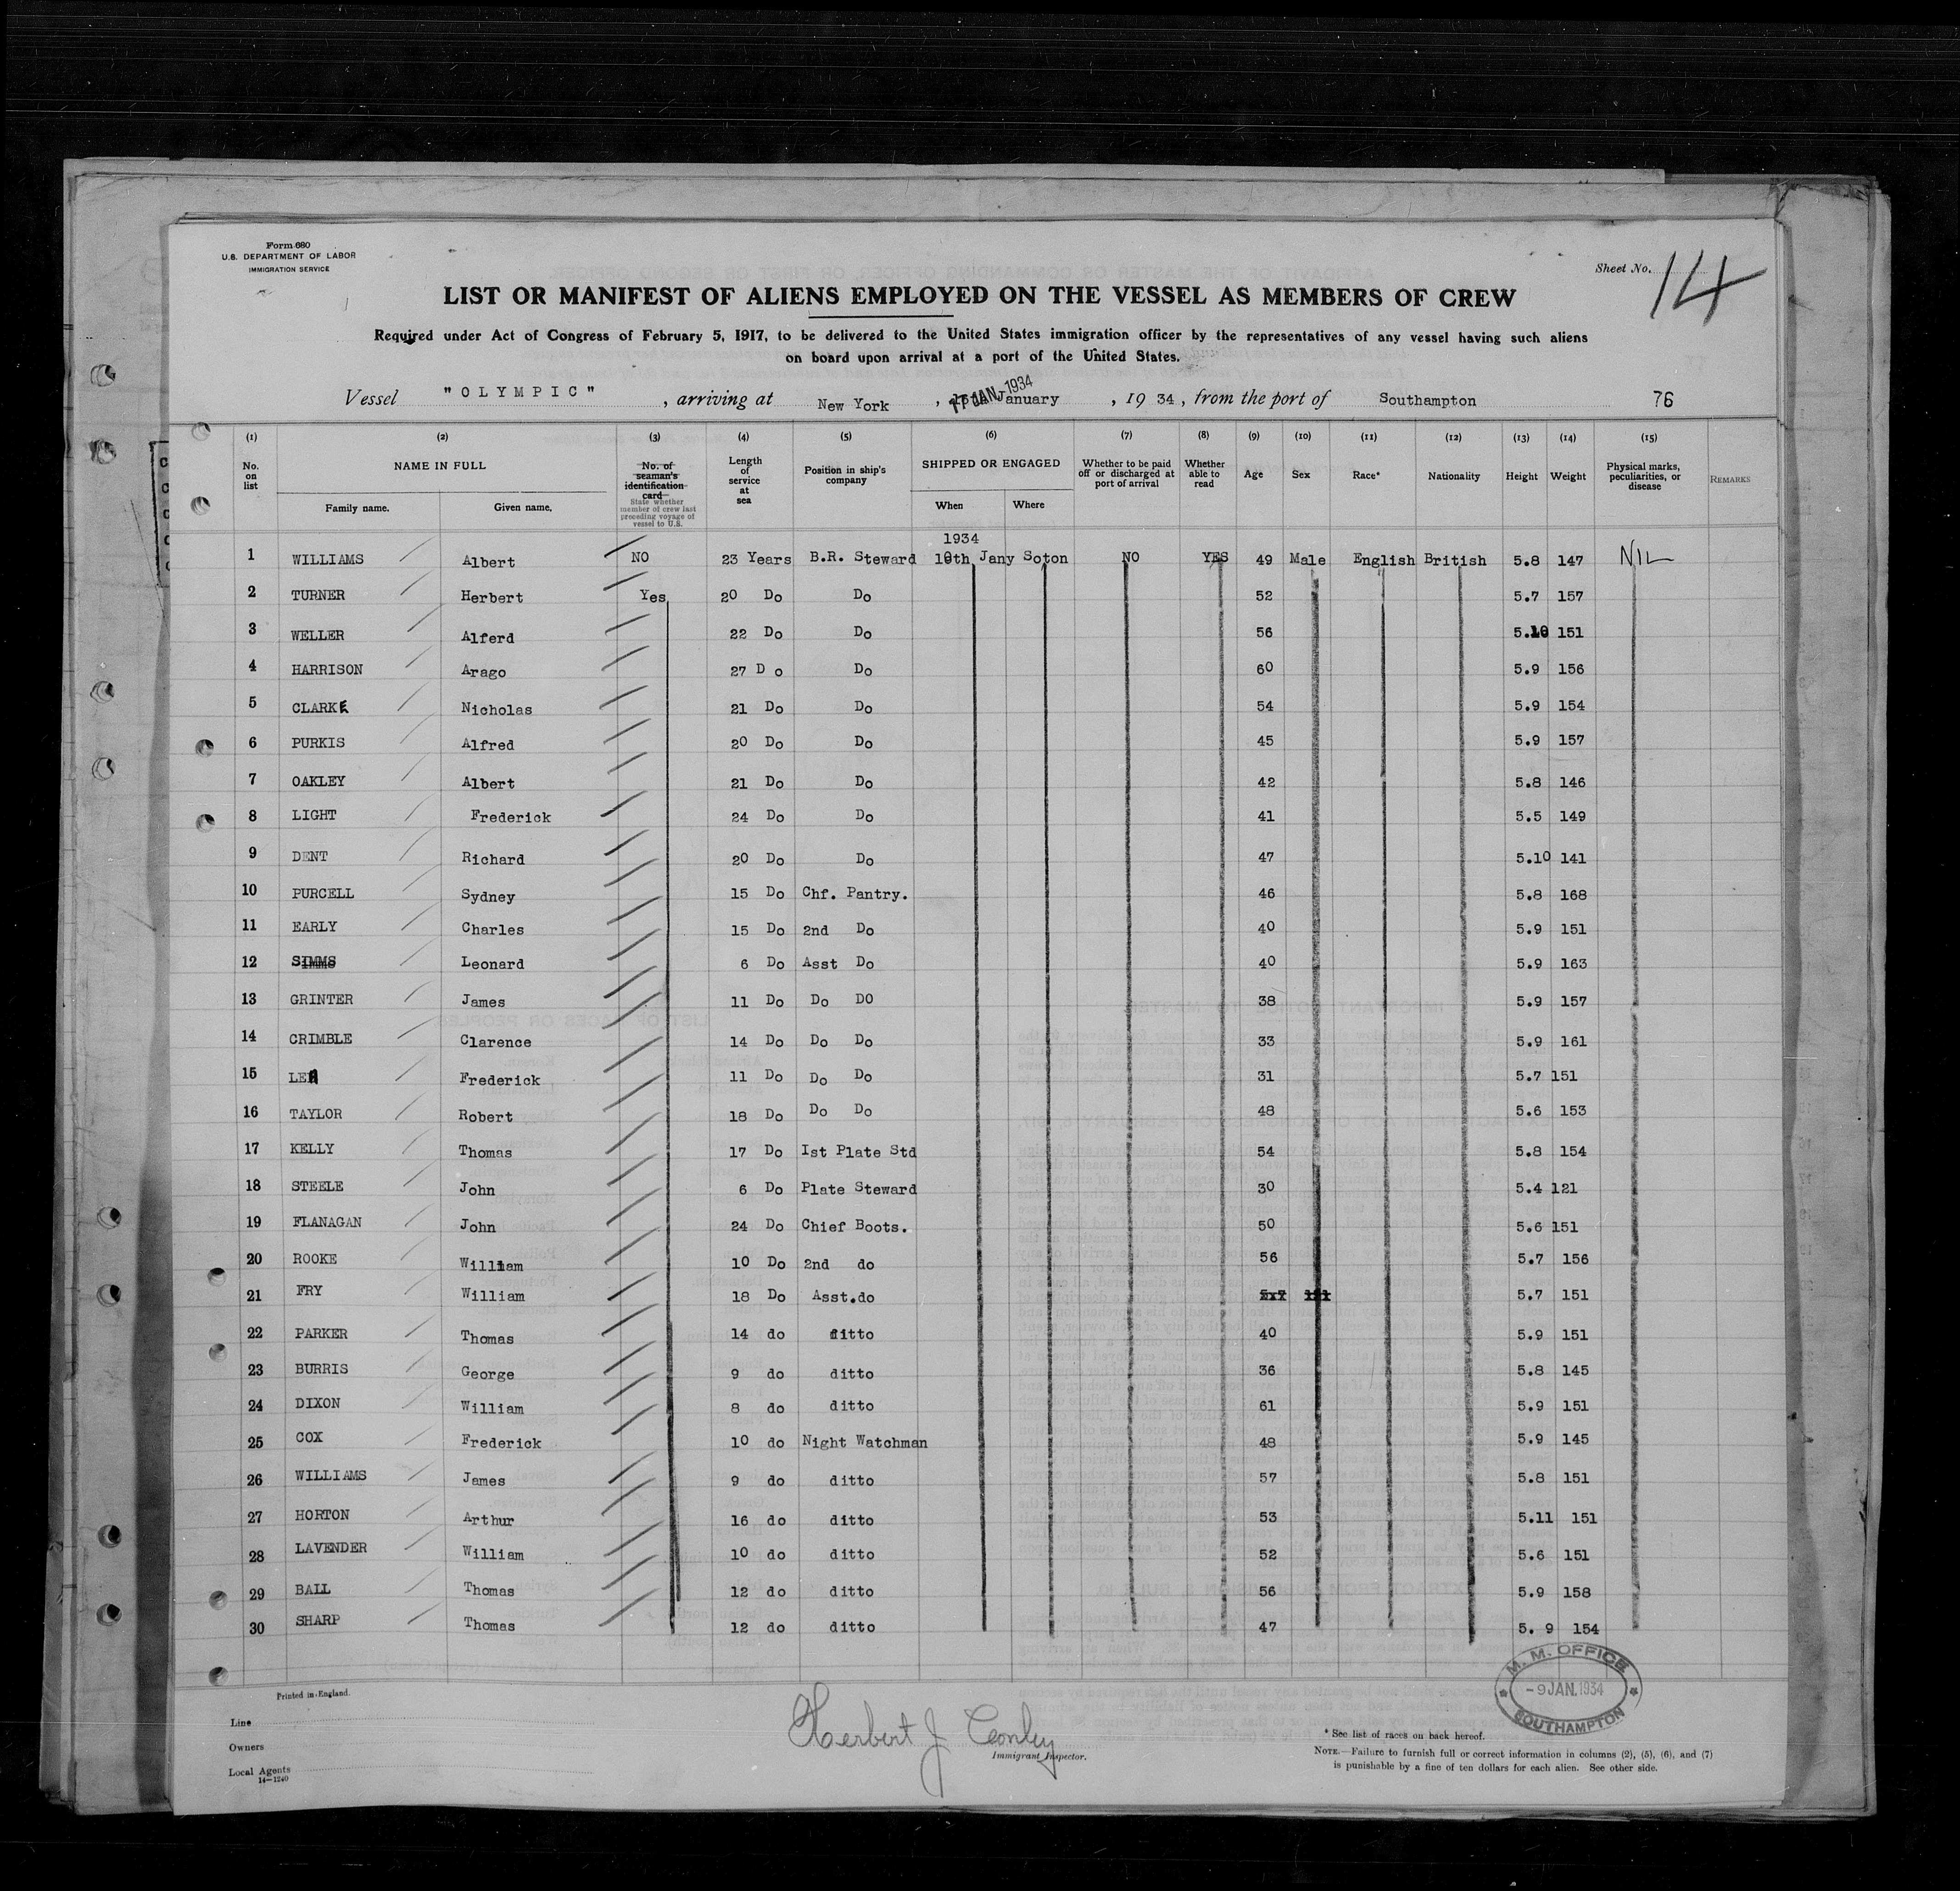 Form 680
U.S. DEPARTMENT OF LABOR
IMMIGRATION SERVICE
Sheet No. 14
LIST OR MANIFEST OF ALIENS EMPLOYED ON THE VESSEL AS MEMBERS OF CREW
Required under Act of Congress of February 5, 1917, to be delivered to the United States immigration officer by the representatives of any vessel having such aliens
on board upon arrival at a port of the United States.
Vessel "OLYMPIC", arriving at New York, 17 JAN 1934 January, 19 34, from the port of Southampton 76
(1) (2) (3) (4) (5) (6) (7) (8) (9) (10) (11) (12) (13) (14) (15)
No. on list NAME IN FULL Family name. Given name. No. of seaman's identification card State whether member of crew last preceding voyage of vessel to U.S. Length of service at sea Position in ship's company SHIPPED OR ENGAGED When Where Whether to be paid off or discharged at port of arrival Whether able to read Age Sex Race* Nationality Height Weight Physical marks, peculiarities, or disease REMARKS
1934
1 WILLIAMS Albert NO 23 Years B.R. Steward 10th Jany Soton NO YES 49 Male English British 5.8 147 NIL
2 TURNER Herbert Yes 20 Do Do 52 5.7 157
3 WELLER Alferd 22 Do Do 56 5.10 151
4 HARRISON Arago 27 D o Do 60 5.9 156
5 CLARKE Nicholas 21 Do Do 54 5.9 154
6 PURKIS Alfred 20 Do Do 45 5.9 157
7 OAKLEY Albert 21 Do Do 42 5.8 146
8 LIGHT Frederick 24 Do Do 41 5.5 149
9 DENT Richard 20 Do Do 47 5.10 141
10 PURCELL Sydney 15 Do Chf. Pantry. 46 5.8 168
11 EARLY Charles 15 Do 2nd Do 40 5.9 151
12 SIMMS Leonard 6 Do Asst Do 40 5.9 163
13 GRINTER James 11 Do Do DO 38 5.9 157
14 CRIMBLE Clarence 14 Do Do Do 33 5.9 161
15 LEA Frederick 11 Do Do Do 31 5.7 151
16 TAYLOR Robert 18 Do Do Do 48 5.6 153
17 KELLY Thomas 17 Do Ist Plate Std 54 5.8 154
18 STEELE John 6 Do Plate Steward 30 5.4 121
19 FLANAGAN John 24 Do Chief Boots. 50 5.6 151
20 ROOKE William 10 Do 2nd do 56 5.7 156
21 FRY William 18 Do Asst.do 5.7 151
22 PARKER Thomas 14 do ditto 40 5.9 151
23 BURRIS George 9 do ditto 36 5.8 145
24 DIXON William 8 do ditto 61 5.9 151
25 COX Frederick 10 do Night Watchman 48 5.9 145
26 WILLIAMS James 9 do ditto 57 5.8 151
27 HORTON Arthur 16 do ditto 53 5.11 151
28 LAVENDER William 10 do ditto 52 5.6 151
29 BALL Thomas 12 do ditto 56 5.9 158
30 SHARP Thomas 12 do ditto 47 5. 9 154
M. M. OFFICE
-9 JAN. 1934
SOUTHAMPTON
Printed in England.
Line
Owners
Local Agents
14-1240
Herbert J Conley
Immigrant Inspector.
* See list of races on back hereof.
NOTE.—Failure to furnish full or correct information in columns (2), (5), (6), and (7)
is punishable by a fine of ten dollars for each alien. See other side.